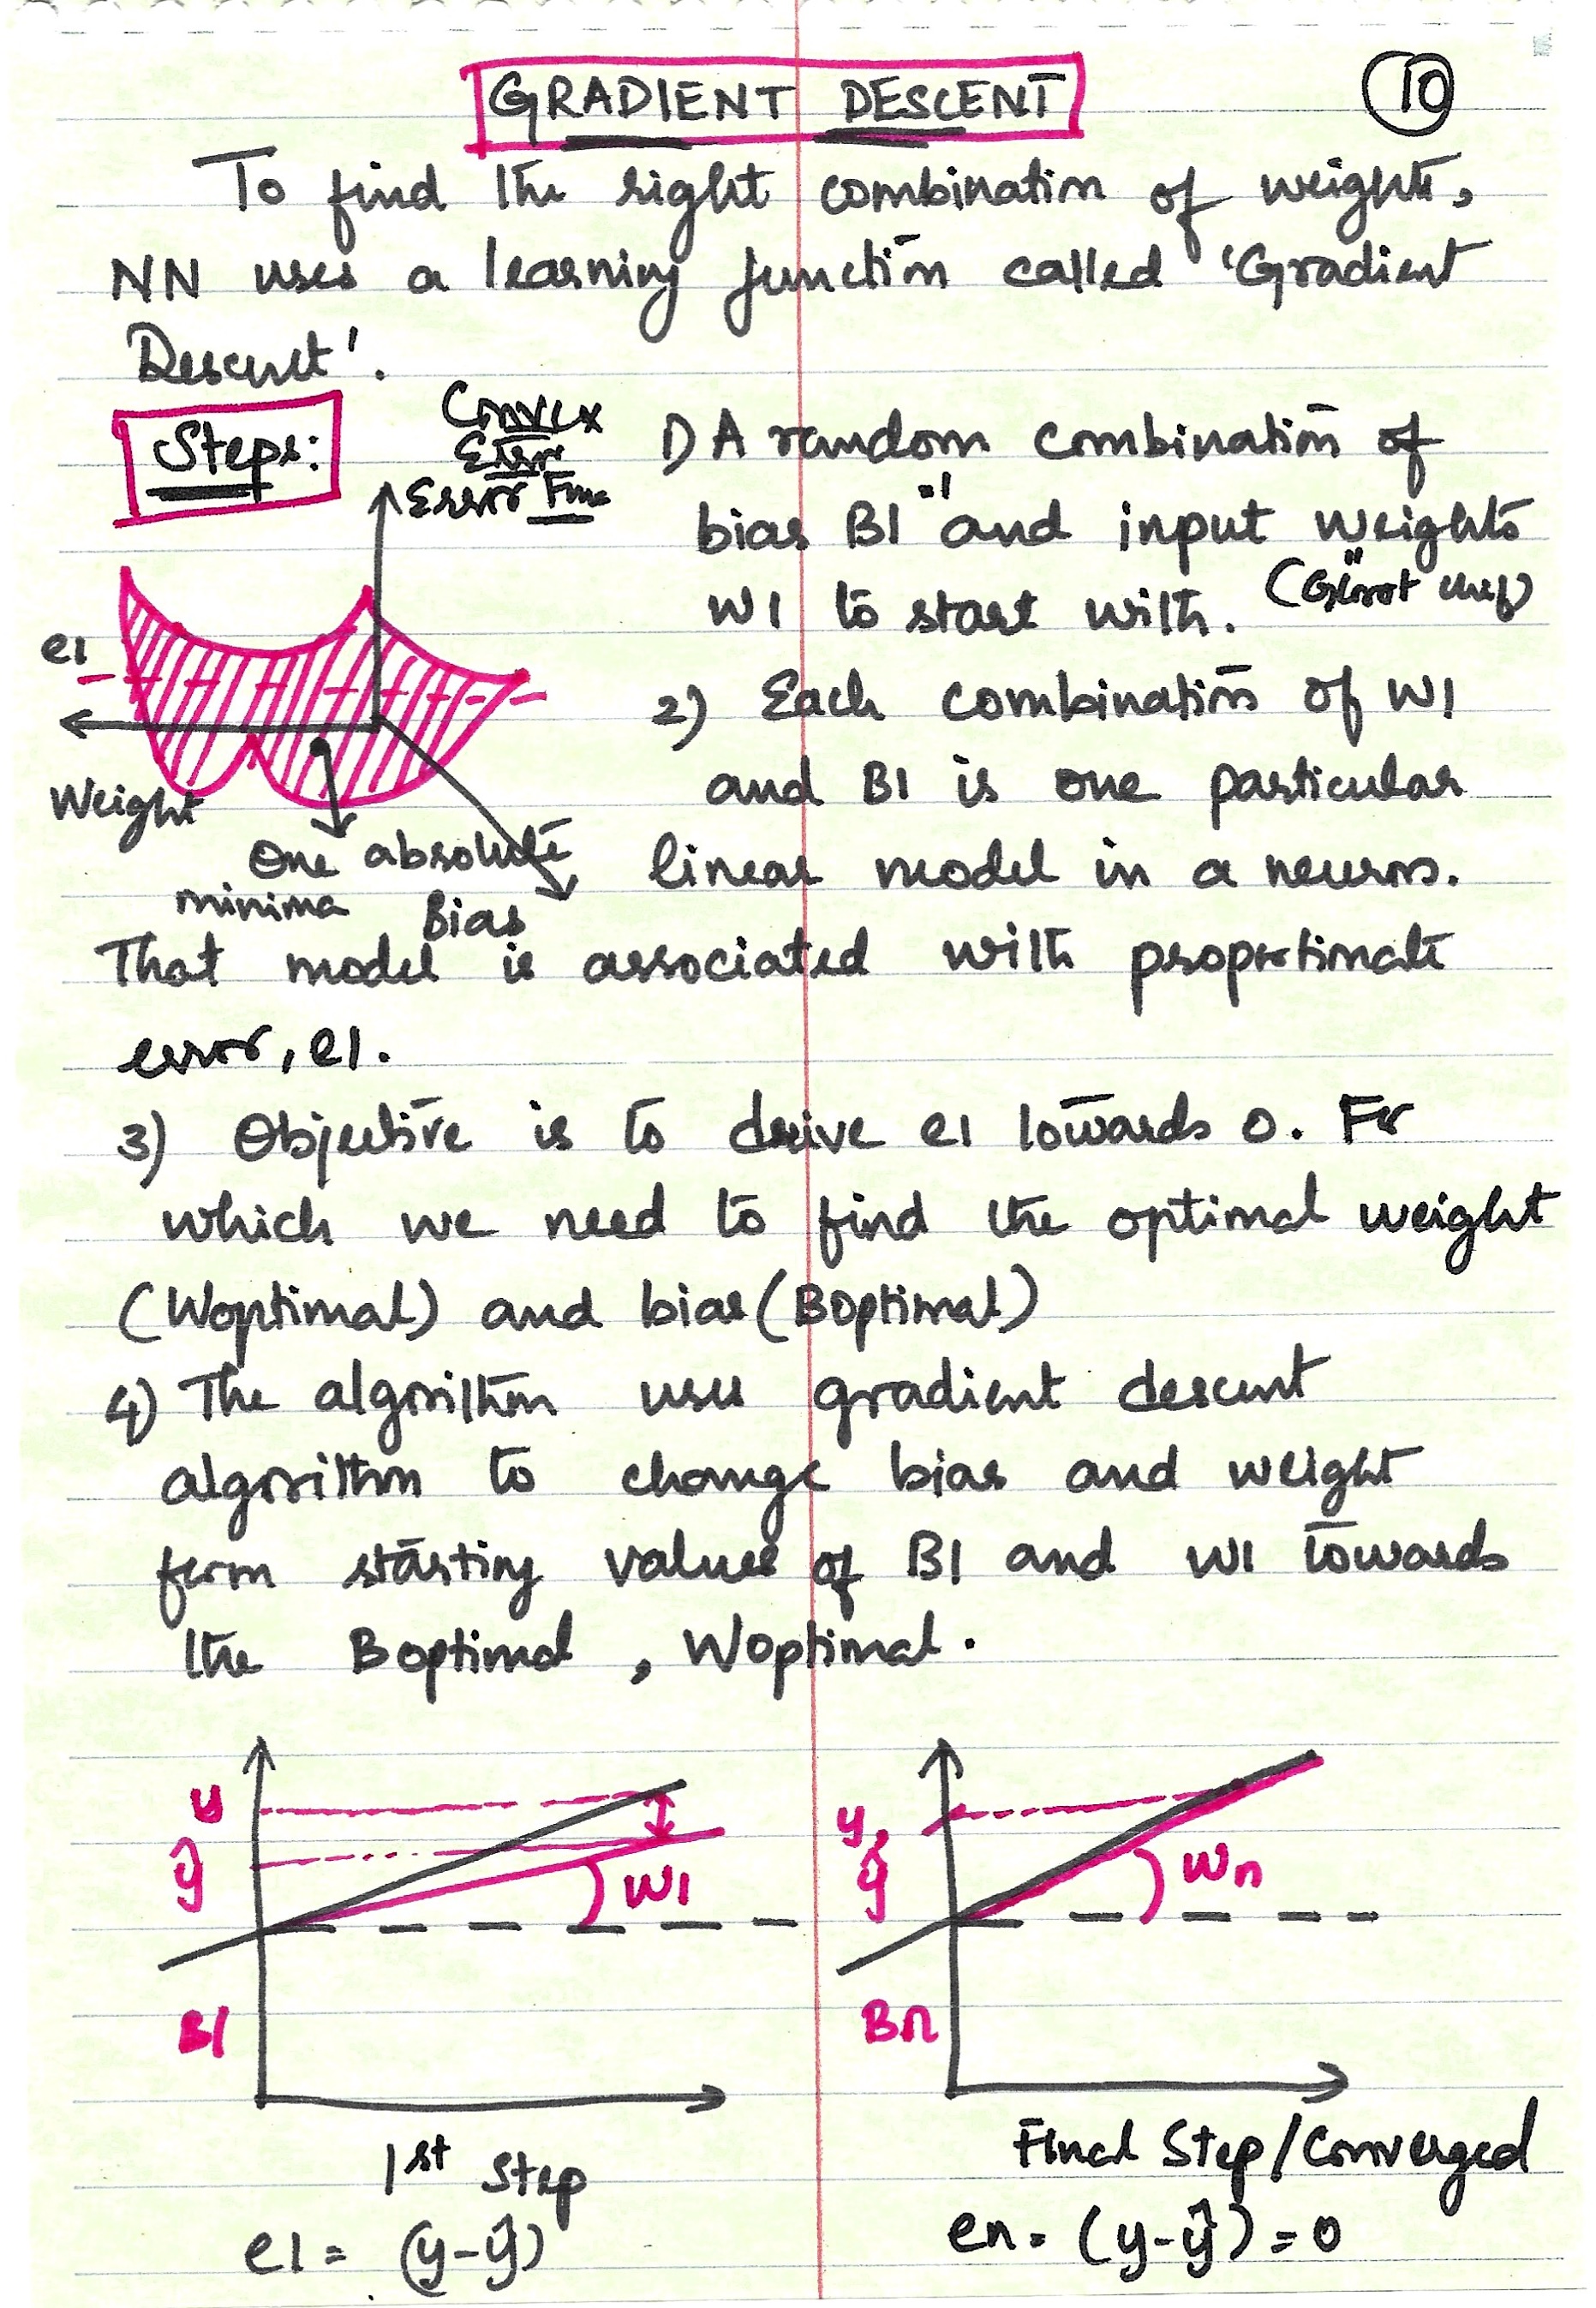 GRADIENT DESCENT
10
To find the right combination of weights,
NN uses a learning function called 'Gradient
Descent'.
Steps:
Convex
Error
Error Func
e1
Weight
One absolute
minima
Bias
1) A random combination of
bias B1 "and input weights"
W1 to start with. (Glorot Unif)
2) Each combination of W1
and B1 is one particular
linear model in a neuron.
That model is associated with proportionate
error, e1.
3) Objective is to drive e1 towards 0. For
which we need to find the optimal weight
(Woptimal) and bias (Boptimal)
4) The algorithm uses gradient descent
algorithm to change bias and weight
form starting values of B1 and W1 towards
the Boptimal, Woptimal.
y
ŷ
W1
B1
1st Step
e1 = (y-ŷ)
y,
ŷ
Wn
Bn
Final Step/Converged
en = (y-ŷ) = 0